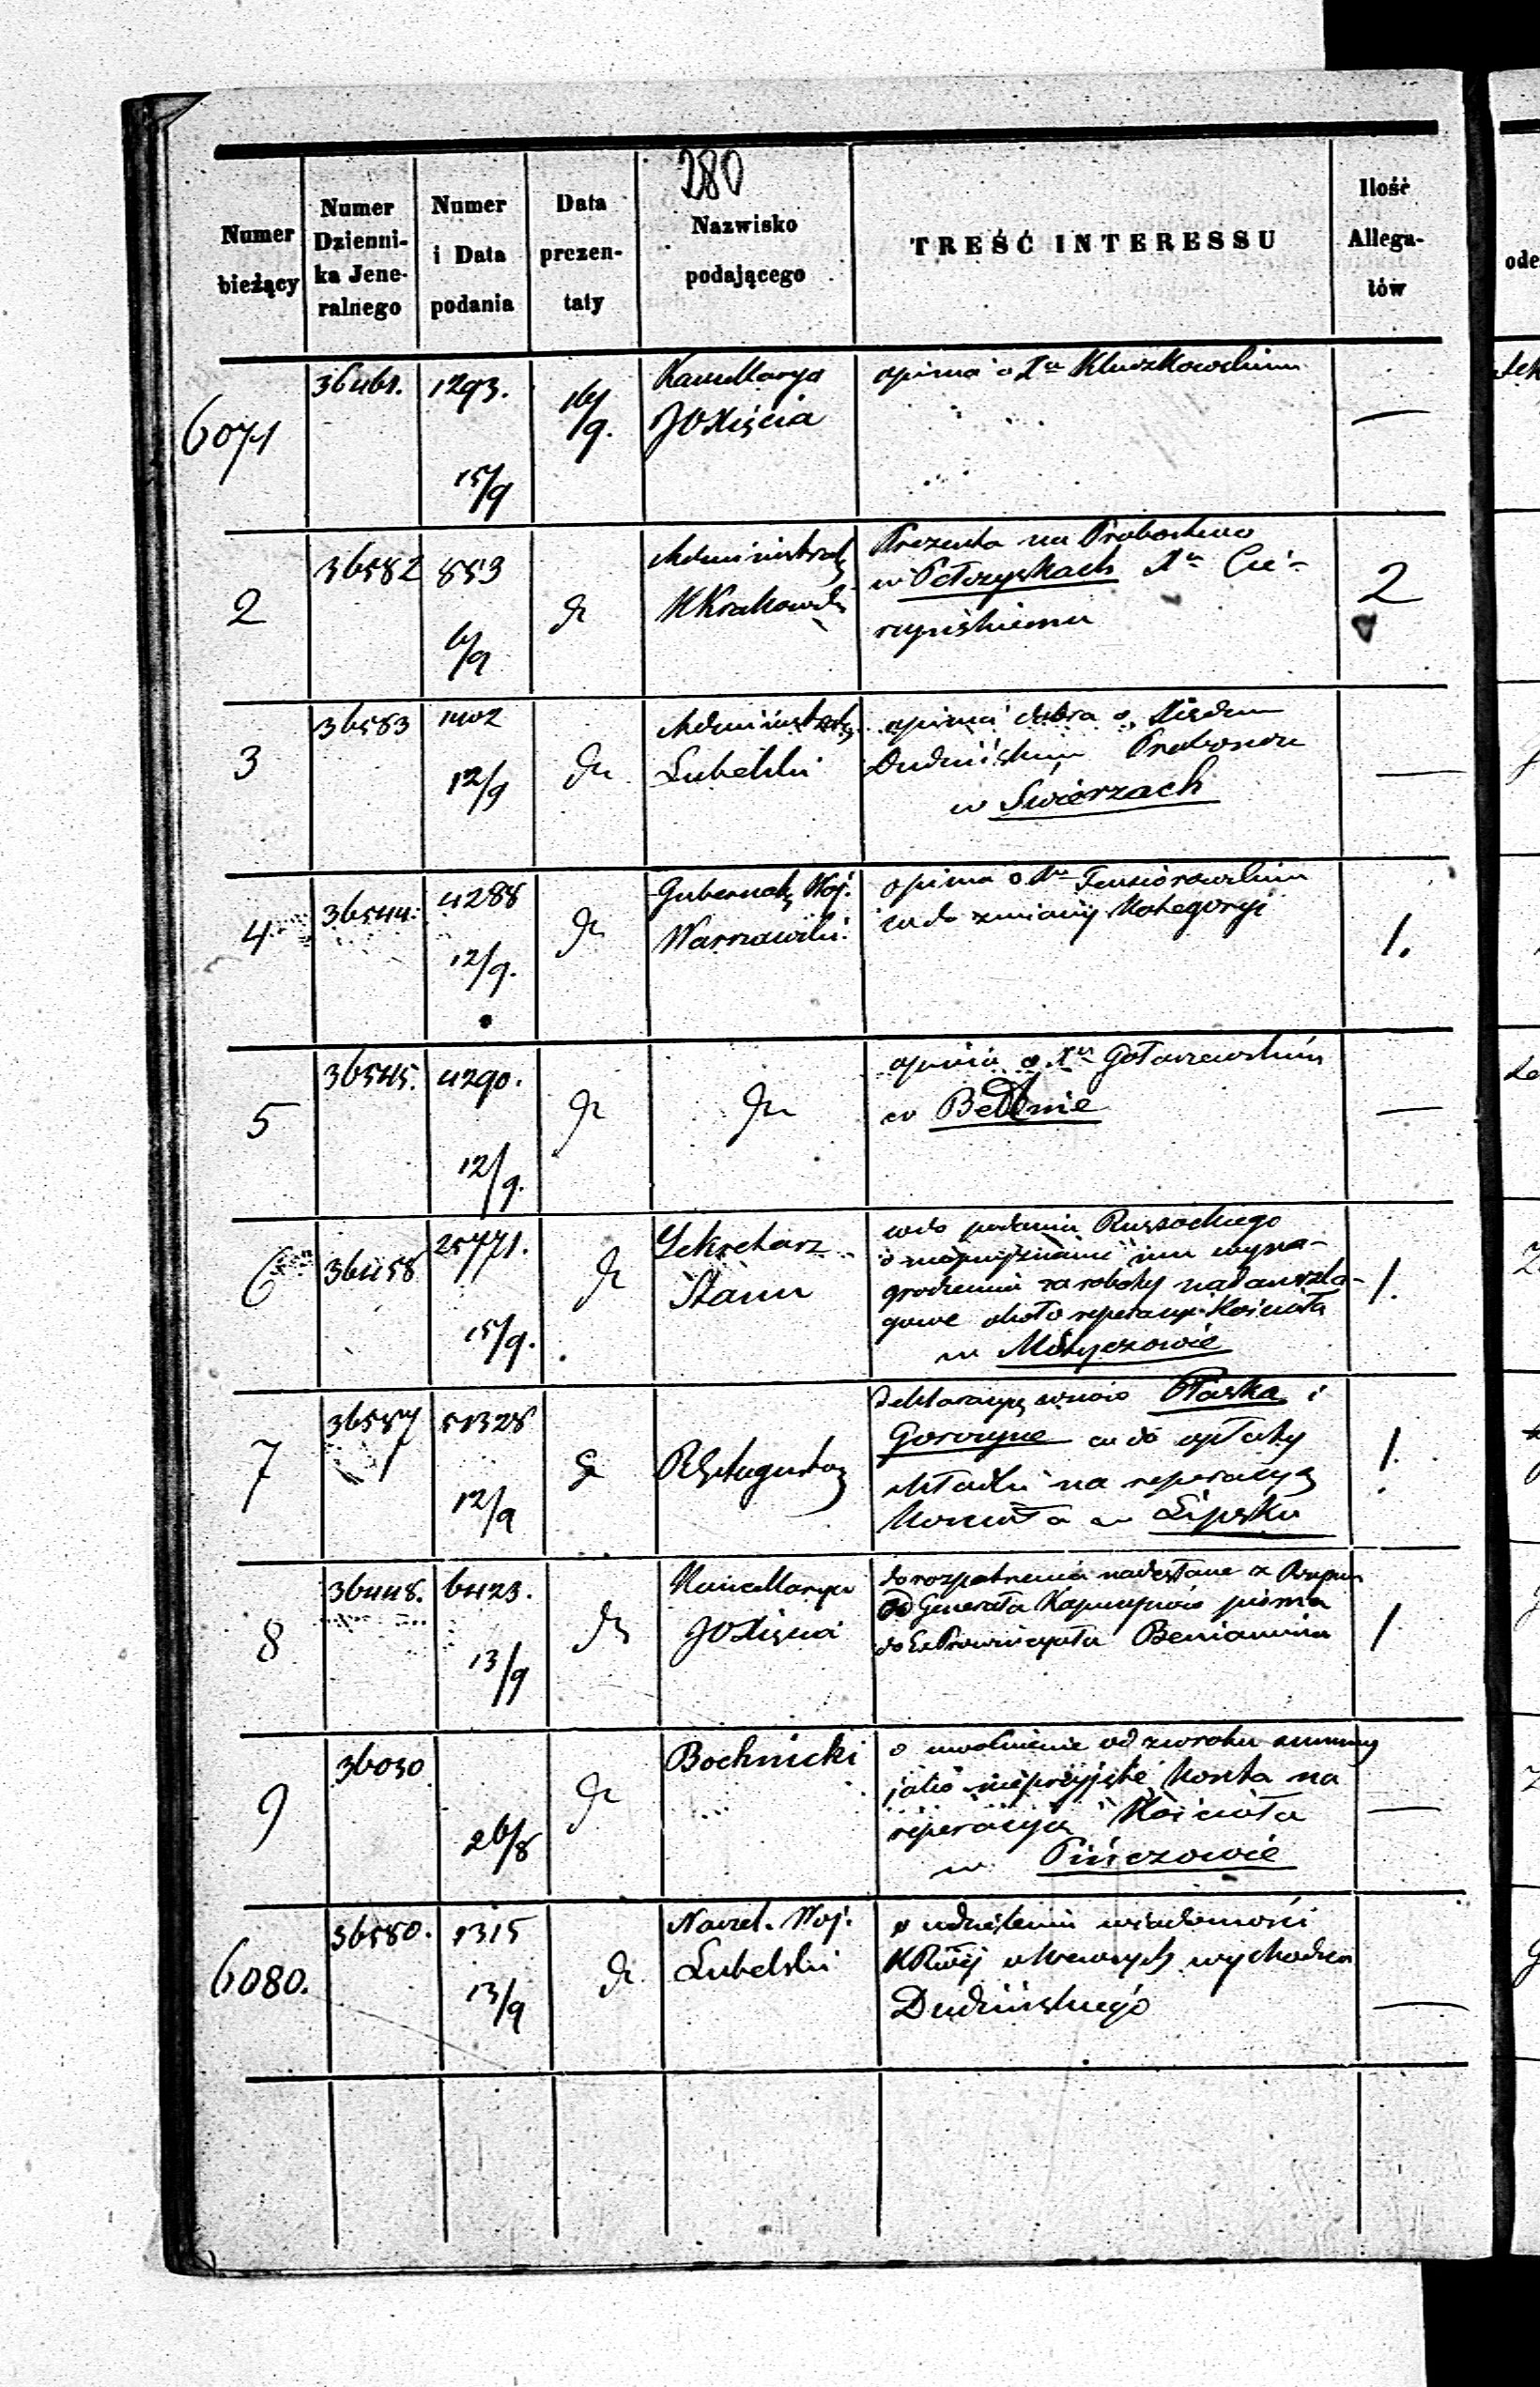 280
Numer
bieżący
Numer
Dzienni-
ka Jene-
ralnego
Numer
i Data
podania
Data
prezen-
taty
Nazwisko
podającego
TREŚĆ INTERESSU
Ilość
Allega-
tów
6071
1293.
15/9
16/9.
Kancellarya
JOXięcia
opinia o Xu Kluszkowskim
—
2
36582
853
6/9
Administrat
KKrakowsk
Prezenta na Probostwo
w Pełczyskach Xu Cie-
rupińskiemu
2
3
36583
1402
12/9
Administrat
Lubelski
opinia dobra o Xiędzu
Dudzińskim Proboszczu
w Świerzach
—
4
36544.
4288
12/9.
Gubernat Woj.
Warszawski
opinia o Xu
co do zmiany Kategoryi
1.
5
36545.
4290.
12/9.
opinia o Xu Gołaszewskim
w Bedlnie
—
6
36458
25771.
15/9.
Sekretarz
Stanu
co do podania Russockiego
o nieprzyznanie mu wyna-
grodzenia za roboty nadanszla-
gowe około reperacyi Kościoła
w
1.
7
36557
51328
12/9
deklaracye wsiów Płaska i
Gorczyce co do opłaty
składki na reperacyą
Kościoła w Lipsku
1.
8
36448.
6423.
13/9
Kancellarya
JOXięcia
do rozpatrzenia nadesłane z Rzymu
od Generała Kapucynów pisma
do ExProwincyała Beniamina
1
9
36030
26/8
Bochnicki
o uwolnienie od zwrotu summy
jako nieprzyjęte Koszta na
reperacyą Kościoła
w Pińczowie
—
6080.
36580.
1315
13/9
Naczel. Woj.
Lubelski
o udzieleniu wiadomości
wychodźca
Dudzińskiego
—